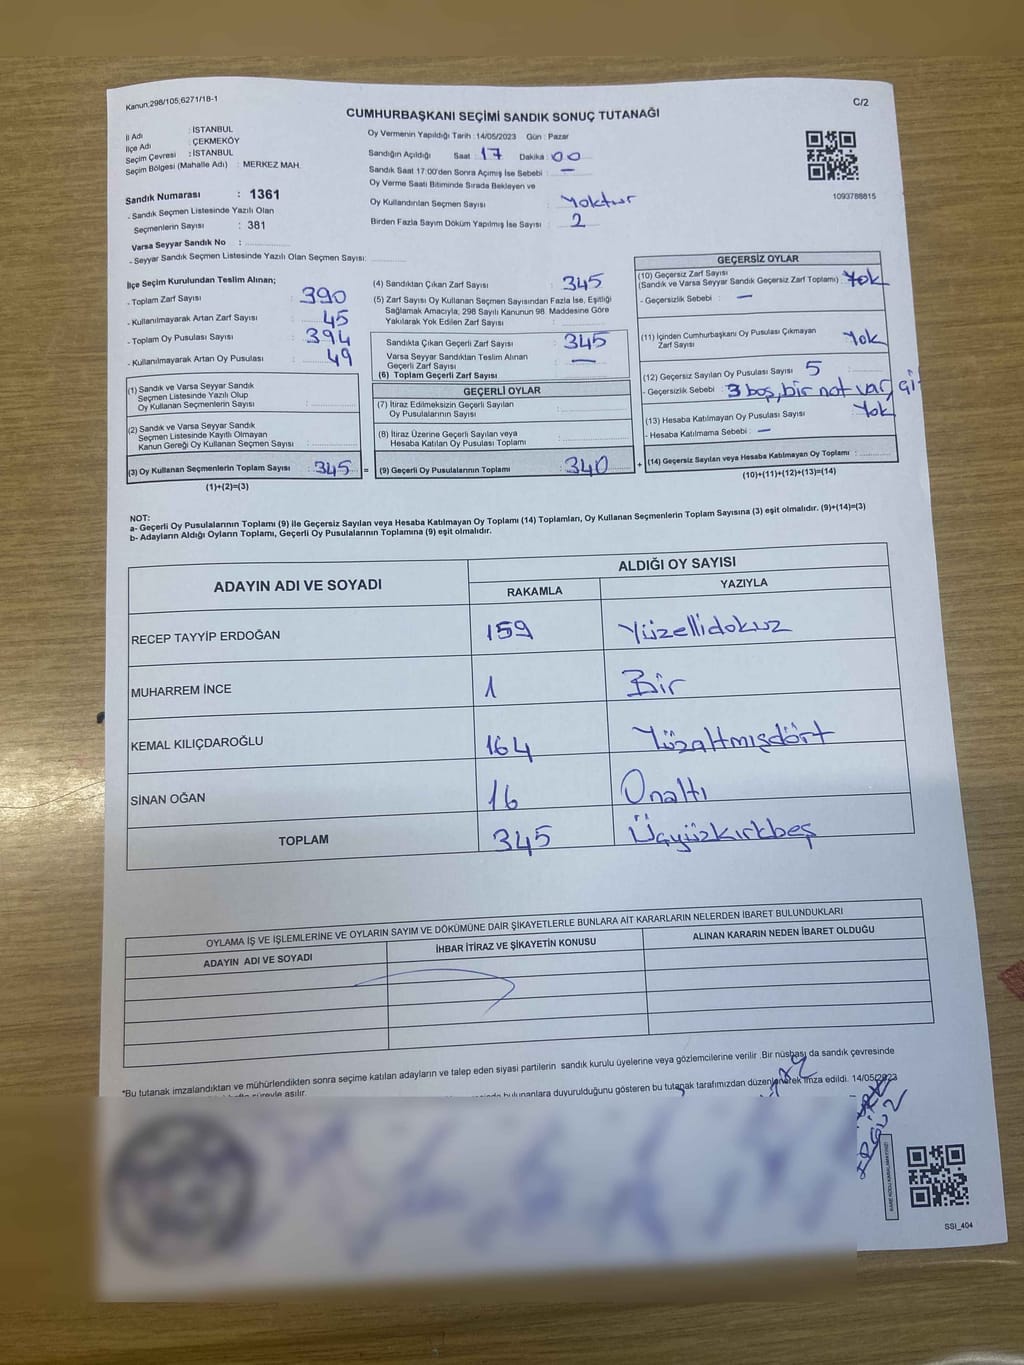 Kanun;298/105,6271/18-1
C/2
CUMHURBAŞKANI SEÇİMİ SANDIK SONUÇ TUTANAĞI
İl Adı : İSTANBUL
İlçe Adı : ÇEKMEKÖY
Seçim Çevresi : İSTANBUL
Seçim Bölgesi (Mahalle Adı) : MERKEZ MAH.
Sandık Numarası : 1361
- Sandık Seçmen Listesinde Yazılı Olan
Seçmenlerin Sayısı : 381
Varsa Seyyar Sandık No :
- Seyyar Sandık Seçmen Listesinde Yazılı Olan Seçmen Sayısı:
Oy Vermenin Yapıldığı Tarih : 14/05/2023 Gün : Pazar
Sandığın Açıldığı Saat : 17 Dakika : 00
Sandık Saat 17:00'den Sonra Açımış İse Sebebi : —
Oy Verme Saati Bitiminde Sırada Bekleyen ve
Oy Kullandırılan Seçmen Sayısı : Yoktur
Birden Fazla Sayım Döküm Yapılmış İse Sayısı : 2
1093788815
İlçe Seçim Kurulundan Teslim Alınan;
- Toplam Zarf Sayısı : 390
- Kullanılmayarak Artan Zarf Sayısı : 45
- Toplam Oy Pusulası Sayısı : 394
- Kullanılmayarak Artan Oy Pusulası : 49
(1) Sandık ve Varsa Seyyar Sandık
Seçmen Listesinde Yazılı Olup
Oy Kullanan Seçmenlerin Sayısı :
(2) Sandık ve Varsa Seyyar Sandık
Seçmen Listesinde Kayıtlı Olmayan
Kanun Gereği Oy Kullanan Seçmen Sayısı :
(3) Oy Kullanan Seçmenlerin Toplam Sayısı : 345 =
(1)+(2)=(3)
(4) Sandıktan Çıkan Zarf Sayısı : 345
(5) Zarf Sayısı Oy Kullanan Seçmen Sayısından Fazla İse, Eşitliği
Sağlamak Amacıyla; 298 Sayılı Kanunun 98. Maddesine Göre
Yakılarak Yok Edilen Zarf Sayısı :
Sandıkta Çıkan Geçerli Zarf Sayısı : 345
Varsa Seyyar Sandıktan Teslim Alınan
Geçerli Zarf Sayısı : —
(6) Toplam Geçerli Zarf Sayısı
GEÇERLİ OYLAR
(7) İtiraz Edilmeksizin Geçerli Sayılan
Oy Pusulalarının Sayısı :
(8) İtiraz Üzerine Geçerli Sayılan veya
Hesaba Katılan Oy Pusulası Toplamı :
(9) Geçerli Oy Pusulalarının Toplamı : 340 +
GEÇERSİZ OYLAR
(10) Geçersiz Zarf Sayısı
(Sandık ve Varsa Seyyar Sandık Geçersiz Zarf Toplamı) : Yok
- Geçersizlik Sebebi : —
(11) İçinden Cumhurbaşkanı Oy Pusulası Çıkmayan
Zarf Sayısı : Yok
(12) Geçersiz Sayılan Oy Pusulası Sayısı : 5
- Geçersizlik Sebebi : 3 boş, bir not var,
(13) Hesaba Katılmayan Oy Pusulası Sayısı : Yok
- Hesaba Katılmama Sebebi : —
(14) Geçersiz Sayılan veya Hesaba Katılmayan Oy Toplamı :
(10)+(11)+(12)+(13)=(14)
NOT:
a- Geçerli Oy Pusulalarının Toplamı (9) ile Geçersiz Sayılan veya Hesaba Katılmayan Oy Toplamı (14) Toplamları, Oy Kullanan Seçmenlerin Toplam Sayısına (3) eşit olmalıdır. (9)+(14)=(3)
b- Adayların Aldığı Oyların Toplamı, Geçerli Oy Pusulalarının Toplamına (9) eşit olmalıdır.
ADAYIN ADI VE SOYADI
ALDIĞI OY SAYISI
RAKAMLA YAZIYLA
RECEP TAYYİP ERDOĞAN 159 Yüzellidokuz
MUHARREM İNCE 1 Bir
KEMAL KILIÇDAROĞLU 164 Yüzaltmışdört
SİNAN OĞAN 16 Onaltı
TOPLAM 345 Üçyüzkırkbeş
OYLAMA İŞ VE İŞLEMLERİNE VE OYLARIN SAYIM VE DÖKÜMÜNE DAİR ŞİKAYETLERLE BUNLARA AİT KARARLARIN NELERDEN İBARET BULUNDUKLARI
ADAYIN ADI VE SOYADI İHBAR İTİRAZ VE ŞİKAYETİN KONUSU ALINAN KARARIN NEDEN İBARET OLDUĞU
*Bu tutanak imzalandıktan ve mühürlendikten sonra seçime katılan adayların ve talep eden siyasi partilerin sandık kurulu üyelerine veya gözlemcilerine verilir. Bir nüshası da sandık çevresinde
süreyle asılır.
bulunanlara duyurulduğunu gösteren bu tutanak tarafımızdan düzenlenerek imza edildi. 14/05/2023
SSI_404